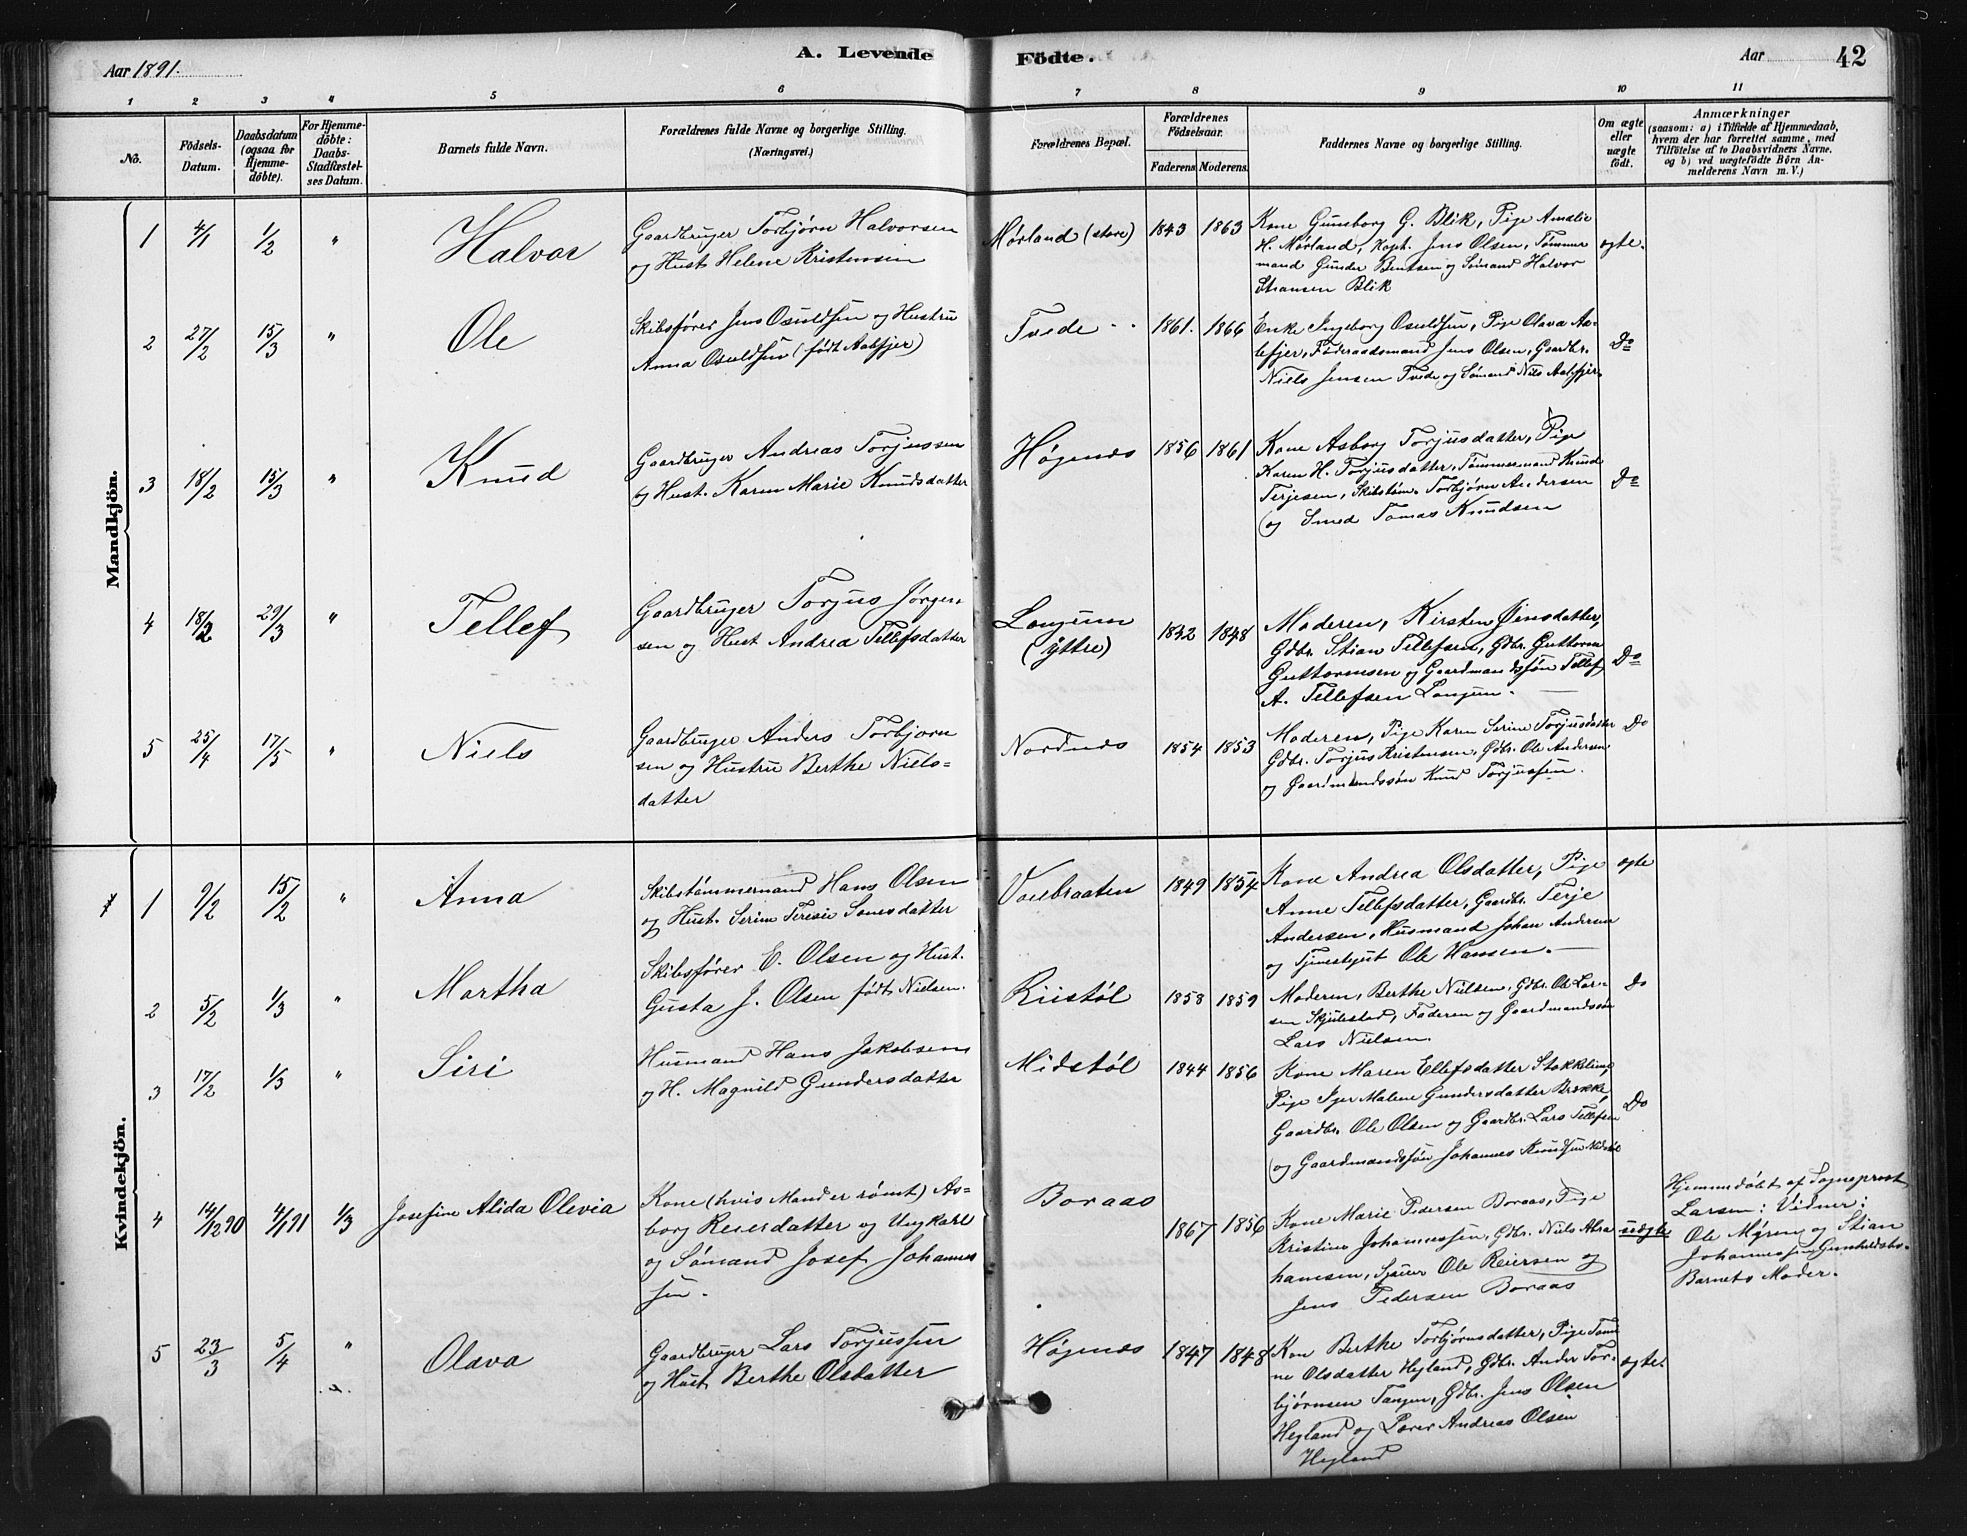 Aar 1891.
A. Levende
Födte.
Aar
42
1 2 3 4 5 6 7 8 9 10 11
No.
Födsels-
Datum.
Daabsdatum
(ogsaa for
Hjemme-
döbte).
For Hjemme-
döbte:
Daabs-
Stadfæstel-
ses Datum.
Barnets fulde Navn.
Forældrenes fulde Navne og borgerlige Stilling.
(Næringsvei.)
Forældrenes Bopæl.
Forældrenes
Födselsaar.
Faderens Moderens.
Faddernes Navne og borgerlige Stilling.
Om ægte
eller
uægte
födt.
Anmærkninger
(saasom: a) i Tilfælde af Hjemmedaab,
hvem der har forrettet samme, med
Tilföielse af to Daabsvidners Navne,
og b) ved uægtefödte Börn An-
melderens Navn m. V.)
Mandkjön.
1 4/1 1/2 " Halvor
Gaardbruger Torbjørn Halvorsen
og Hust. Helene Kristensen
Mørland (store) 1843 1863
Kone Gunborg G. Blik, Pige Amalie
H. Mørland, Kapt. Jens Olsen, Tømmer
mand Gunder Bentsen og Sømand Halvor
Stiansen Blik
ægte.
2 27/2 15/3 " Ole
Skibsfører Jens Osuldsen og Hustru
Anna Osuldsen (født Aabfjer)
Tvede 1861. 1866
Enke Ingeborg Osuldsen, Pige Olava Aa-
befjer, Føderaadsmand Jens Olsen, Gaardbr.
Niels Jensen Tvede og Sømand Nils Aabfjer.
Do
3 18/2 15/3 " Knud
Gaardbruger Andreas Torjussen
og Hust. Karen Marie Knudsdatter
Høgenæs 1856 1861
Kone Asborg Torjusdatter, Pige
Karen H. Torjusdatter, Tømmermand Knud
Terjesen, Skibstøm. Torbjørn Andersen
og Smed Tomas Knudsen
Do
4 18/2 29/3 " Tellef
Gaardbruger Torjus Jørgen-
sen og Hust Andrea Tellefsdatter
Longum
(yttre)
1842 1848
Moderen, Kirsten Jensdatter,
Gdbr. Stian Tellefsen, Gdbr. Guttorm
Guttormsen og Gaardmandssøn Tellef
A. Tellefsen Longum.
Do
5 25/4 17/5 " Niels
Gaardbruger Anders Torbjørn
sen og Hustru Berthe Niels-
datter
Nordnæs 1854 1853
Moderen, Pige Karen Serine Torjusdatter
Gdbr. Torjus Kristensen, Gdbr. Ole Andersen
og Gaardmandssøn Knud Torjussen.
Do
Kvindekjön.
1 9/2 15/2 " Anna
Skibstømmermand Hans Olsen
og Hust. Serine Teresie Sonesdatter
1849 1854
Kone Andrea Olsdatter, Pige
Anne Tellefsdatter, Gaardbr. Terje
Andersen, Husmand Johan Andersen
og Tjenestgut Ole Hansen.
ægte
2 5/2 1/3 " Martha
Skibsfører E. Olsen og Hust.
Gusta J. Olsen født Nielsen.
Riistøl 1858 1859
Moderen, Berthe Nielsen, Gdbr. Ole Lar-
sen Skjulestad, Faderen og Gaardmandssøn
Lars Nielsen.
Do
3 17/2 1/3 " Siri
Husmand Hans Jakobsen
og H. Magnild Gundersdatter
Midstøl 1844 1856
Kone Maren Ellefsdatter
Pige Malene Gundersdatter Brekke,
Gaardbr. Ole Olsen og Gaardbr. Lars Tellefsen
og Gaardmandssøn Johannes Knudsen Midstøl
Do
4 14/12 90 4/1 91 1/3 Josefine Alida Olevia
Kone (hvis Mand er rømt) As-
borg Reiersdatter og Ungkarl
og Sømand Josef Johannes
sen.
Boraas
1867 1856
Kone Marie Pedersen Boraas, Pige
Kristine Johannessen, Gdbr. Niels Abra
hamsen, Sjauer Ole Reiersen og
Jens Pedersen Boraas
uægte
Hjemmedøbt af Sogneprest
Larsen: Vidner:
Ole Myren og Stian
Johannessen
Barnets Moder.
5 23/3 5/4 " Olava
Gaardbruger Lars Torjussen
og Hust. Berthe Olsdatter
Høgenæs 1847 1848
Kone Berthe Torbjørnsdatter, Pige Tom
ne Olsdatter Hegland, Gdbr. Ander Tor-
bjørnsen Tangen, Gdbr. Jens Olsen
Hegland og Lærer Andreas Olsen
Hegland
ægte.